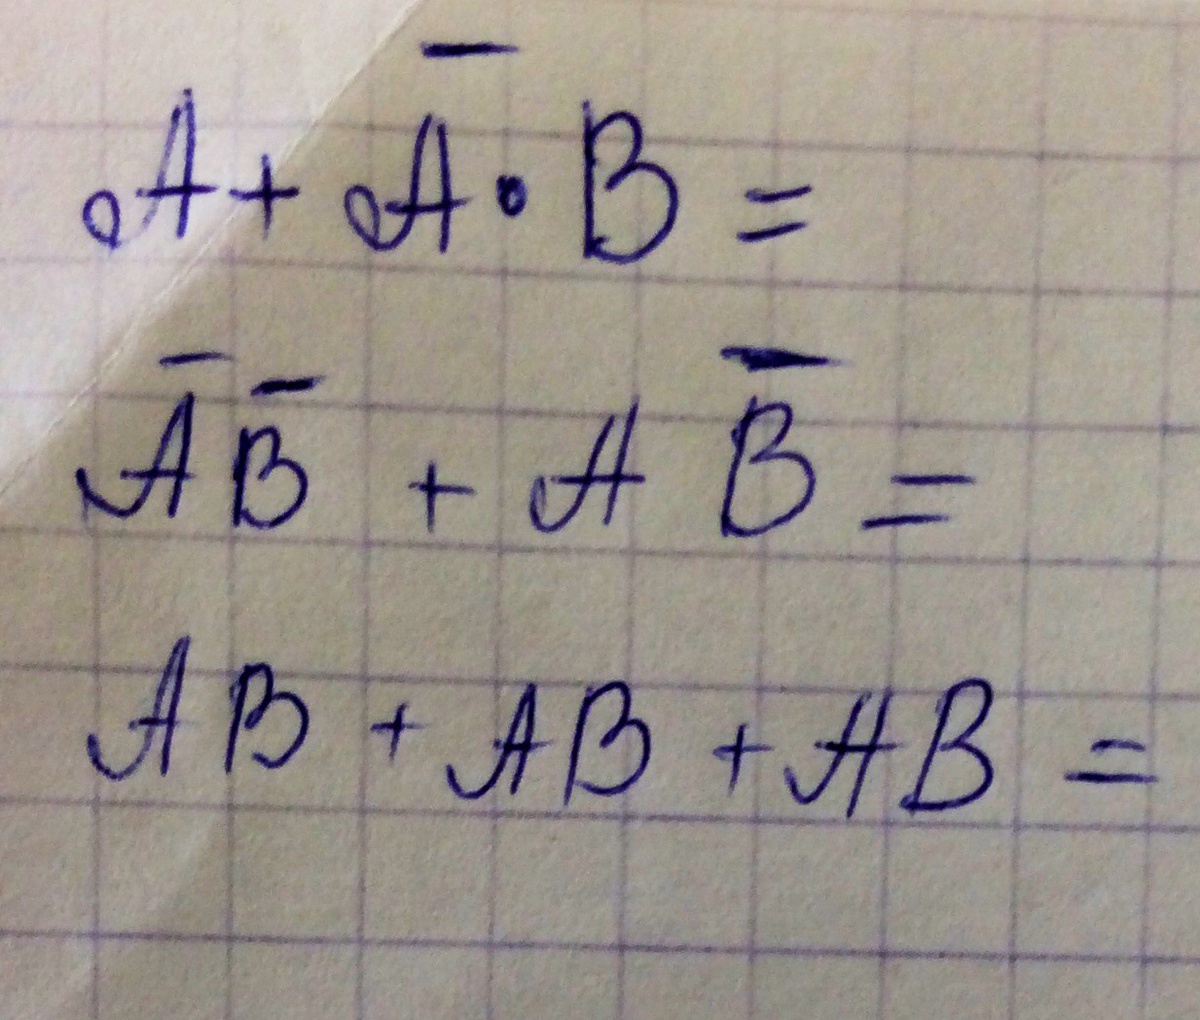 A + A̅ · B =
A̅ B̅ + A B̅ =
AB + AB + AB =